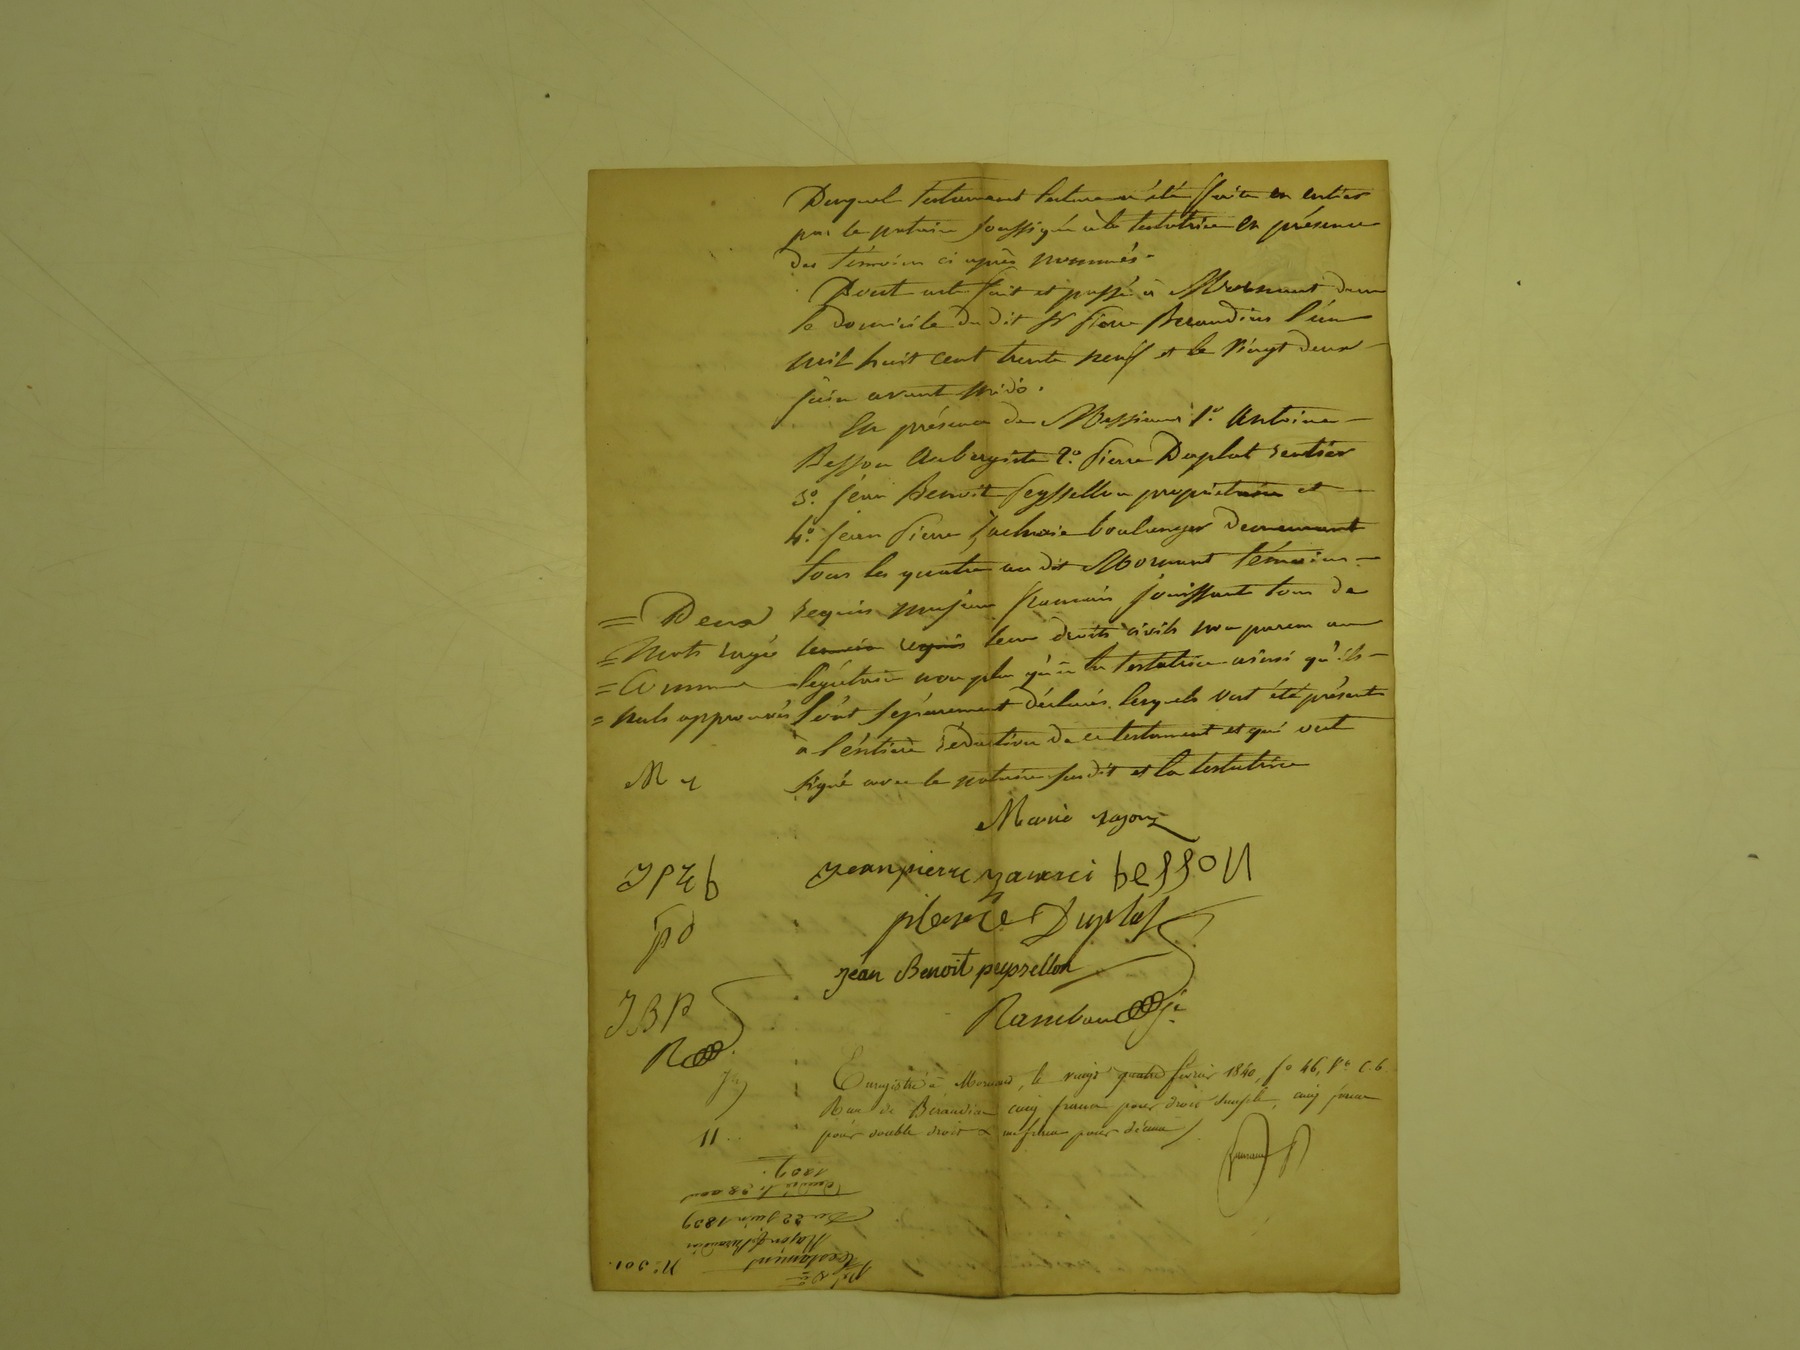 Duquel testament lecture a été faite en entier
par le notaire soussigné à la testatrice en présence
des témoins ci après nommés.
Dont acte fait et passé à Mornant dans
le domicile du dit Sr Pierre Beraudier l'an
mil huit cent trente neuf et le vingt deux
juin avant midi.
En présence de Messieurs 1o. Antoine
Besson aubergiste 2o. Pierre Duplat rentier
3o. Jean Benoit Peyssellon propriétaire et
4o. Jean Pierre Zacharie boulanger demeurant
tous les quatre au dit Mornant témoins
requis majeurs français jouissant tous de
témoins requis leurs droits civils non parens aux
légataires non plus qu'à la testatrice ainsi qu'ils
l'ont séparément déclarés lesquels ont été présents
à l'entière rédaction de ce testament et qui ont
signé avec le notaire susdit et la testatrice
= Deux
= Mots rayés
= Comme
= nuls approuvés
M r
JPZ b
pd
JBP
R
Marie razoux
Jean pierre besson
pierre Duplat
jean Benoit peyssellon
Rambaud
Enregistré à Mornant, le vingt quatre février 1840, fo 46, Vo C. 6
Reçu de Béraudier cinq francs pour droit simple, cinq francs
pour double droit & un franc pour décime
11
No 301.
Testament
Du 22 juin 1839